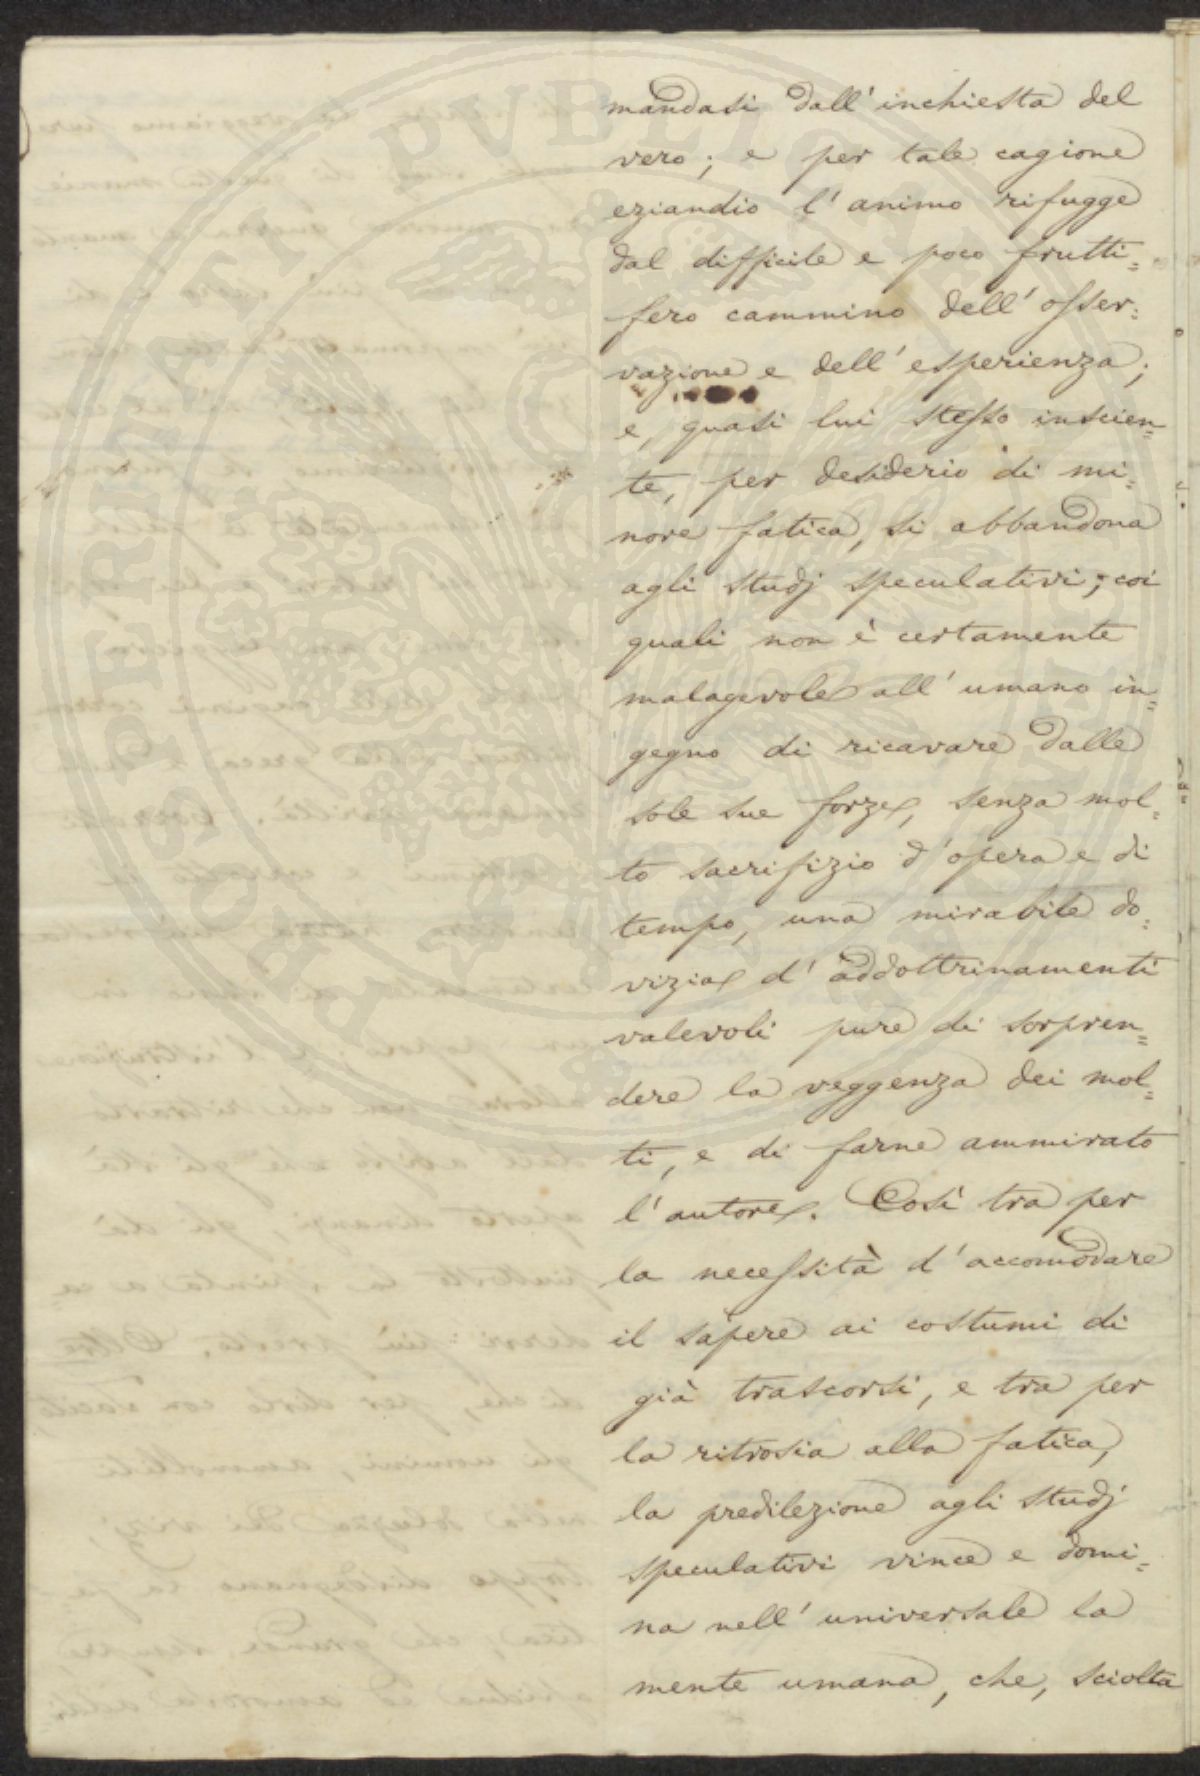 mandasi dall' inchiesta del
vero; e per tale cagione
eziandio l' animo rifugge
dal difficile e poco frutti=
fero cammino dell' osser=
vazione e dell' esperienza;
e, quasi lui stesso inscien=
te, per desiderio di mi=
nore fatica, si abbandona
agli studj speculativi; coi
quali non è certamente
malagevole all' umano in=
gegno di ricavare dalle
sole sue forze, senza mol=
to sacrifizio d' opera e di
tempo, una mirabile do=
vizia d' addottrinamenti
valevoli pure di sorpren=
dere la veggenza dei mol=
ti, e di farne ammirato
l' autore. Così tra per
la necessità d' accomodare
il sapere ai costumi di
già trascorsi, e tra per
la ritrosia alla fatica,
la predilezione agli studj
speculativi vince e domi=
na nell' universale la
mente umana, che, sciolta
PROSPERITATI PVBLICAE